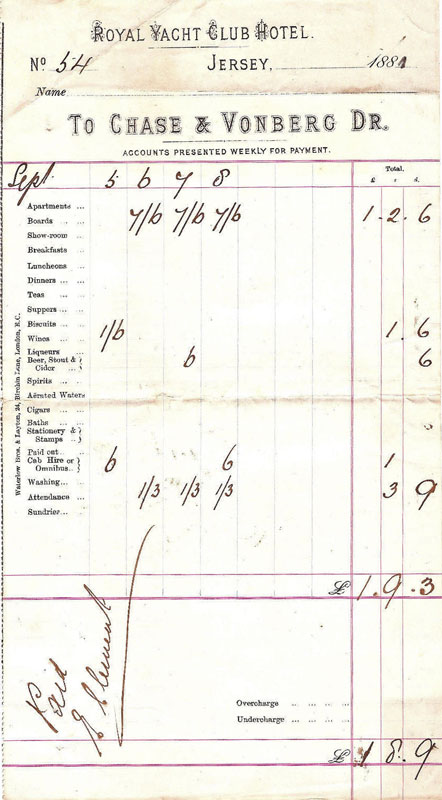 ROYAL YACHT CLUB HOTEL.
No 54 JERSEY, 1881
Name
TO CHASE & VONBERG DR.
ACCOUNTS PRESENTED WEEKLY FOR PAYMENT.
Sept 5 6 7 8 Total.
£ s. d.
Apartments
Boards 7/6 7/6 7/6 1. 2. 6
Show-room
Breakfasts
Luncheons
Dinners
Teas
Suppers
Biscuits
Wines 1/6 1. 6
Liqueurs
Beer, Stout & Cider } 6 6
Spirits
Aërated Waters
Cigars
Baths
Stationery & Stamps }
Paid out
Cab Hire or Omnibus } 6 6 1
Washing
Attendance 1/3 1/3 1/3 3 9
Sundries
£ 1. 9. 3
Paid
Overcharge
Undercharge
£ 1 8. 9
Waterlow Bros. & Layton, 24, Birchin Lane, London, E.C.